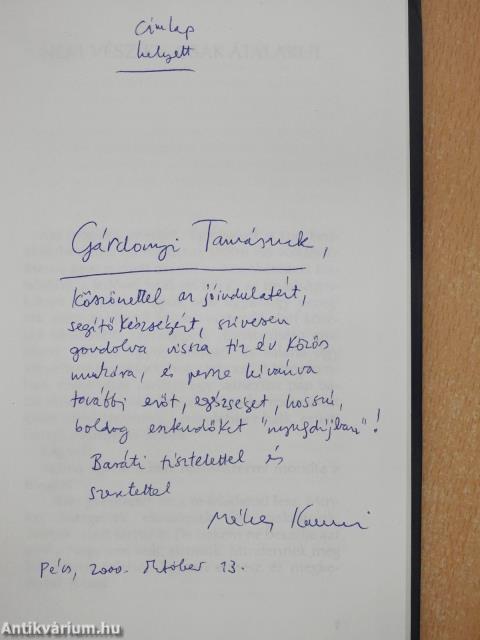 Címlap
helyett
Gárdonyi Tamásnak,
Köszönettel az jóindulatért,
segítőkészségért, szívesen
gondolva vissza tíz év közös
munkára, és persze kívánva
további erőt, egészséget, hosszú,
boldog esztendőket "nyugdíjban"!
Baráti tisztelettel és
szeretettel
Pécs, 2000. Október 13.
Antikvárium.hu